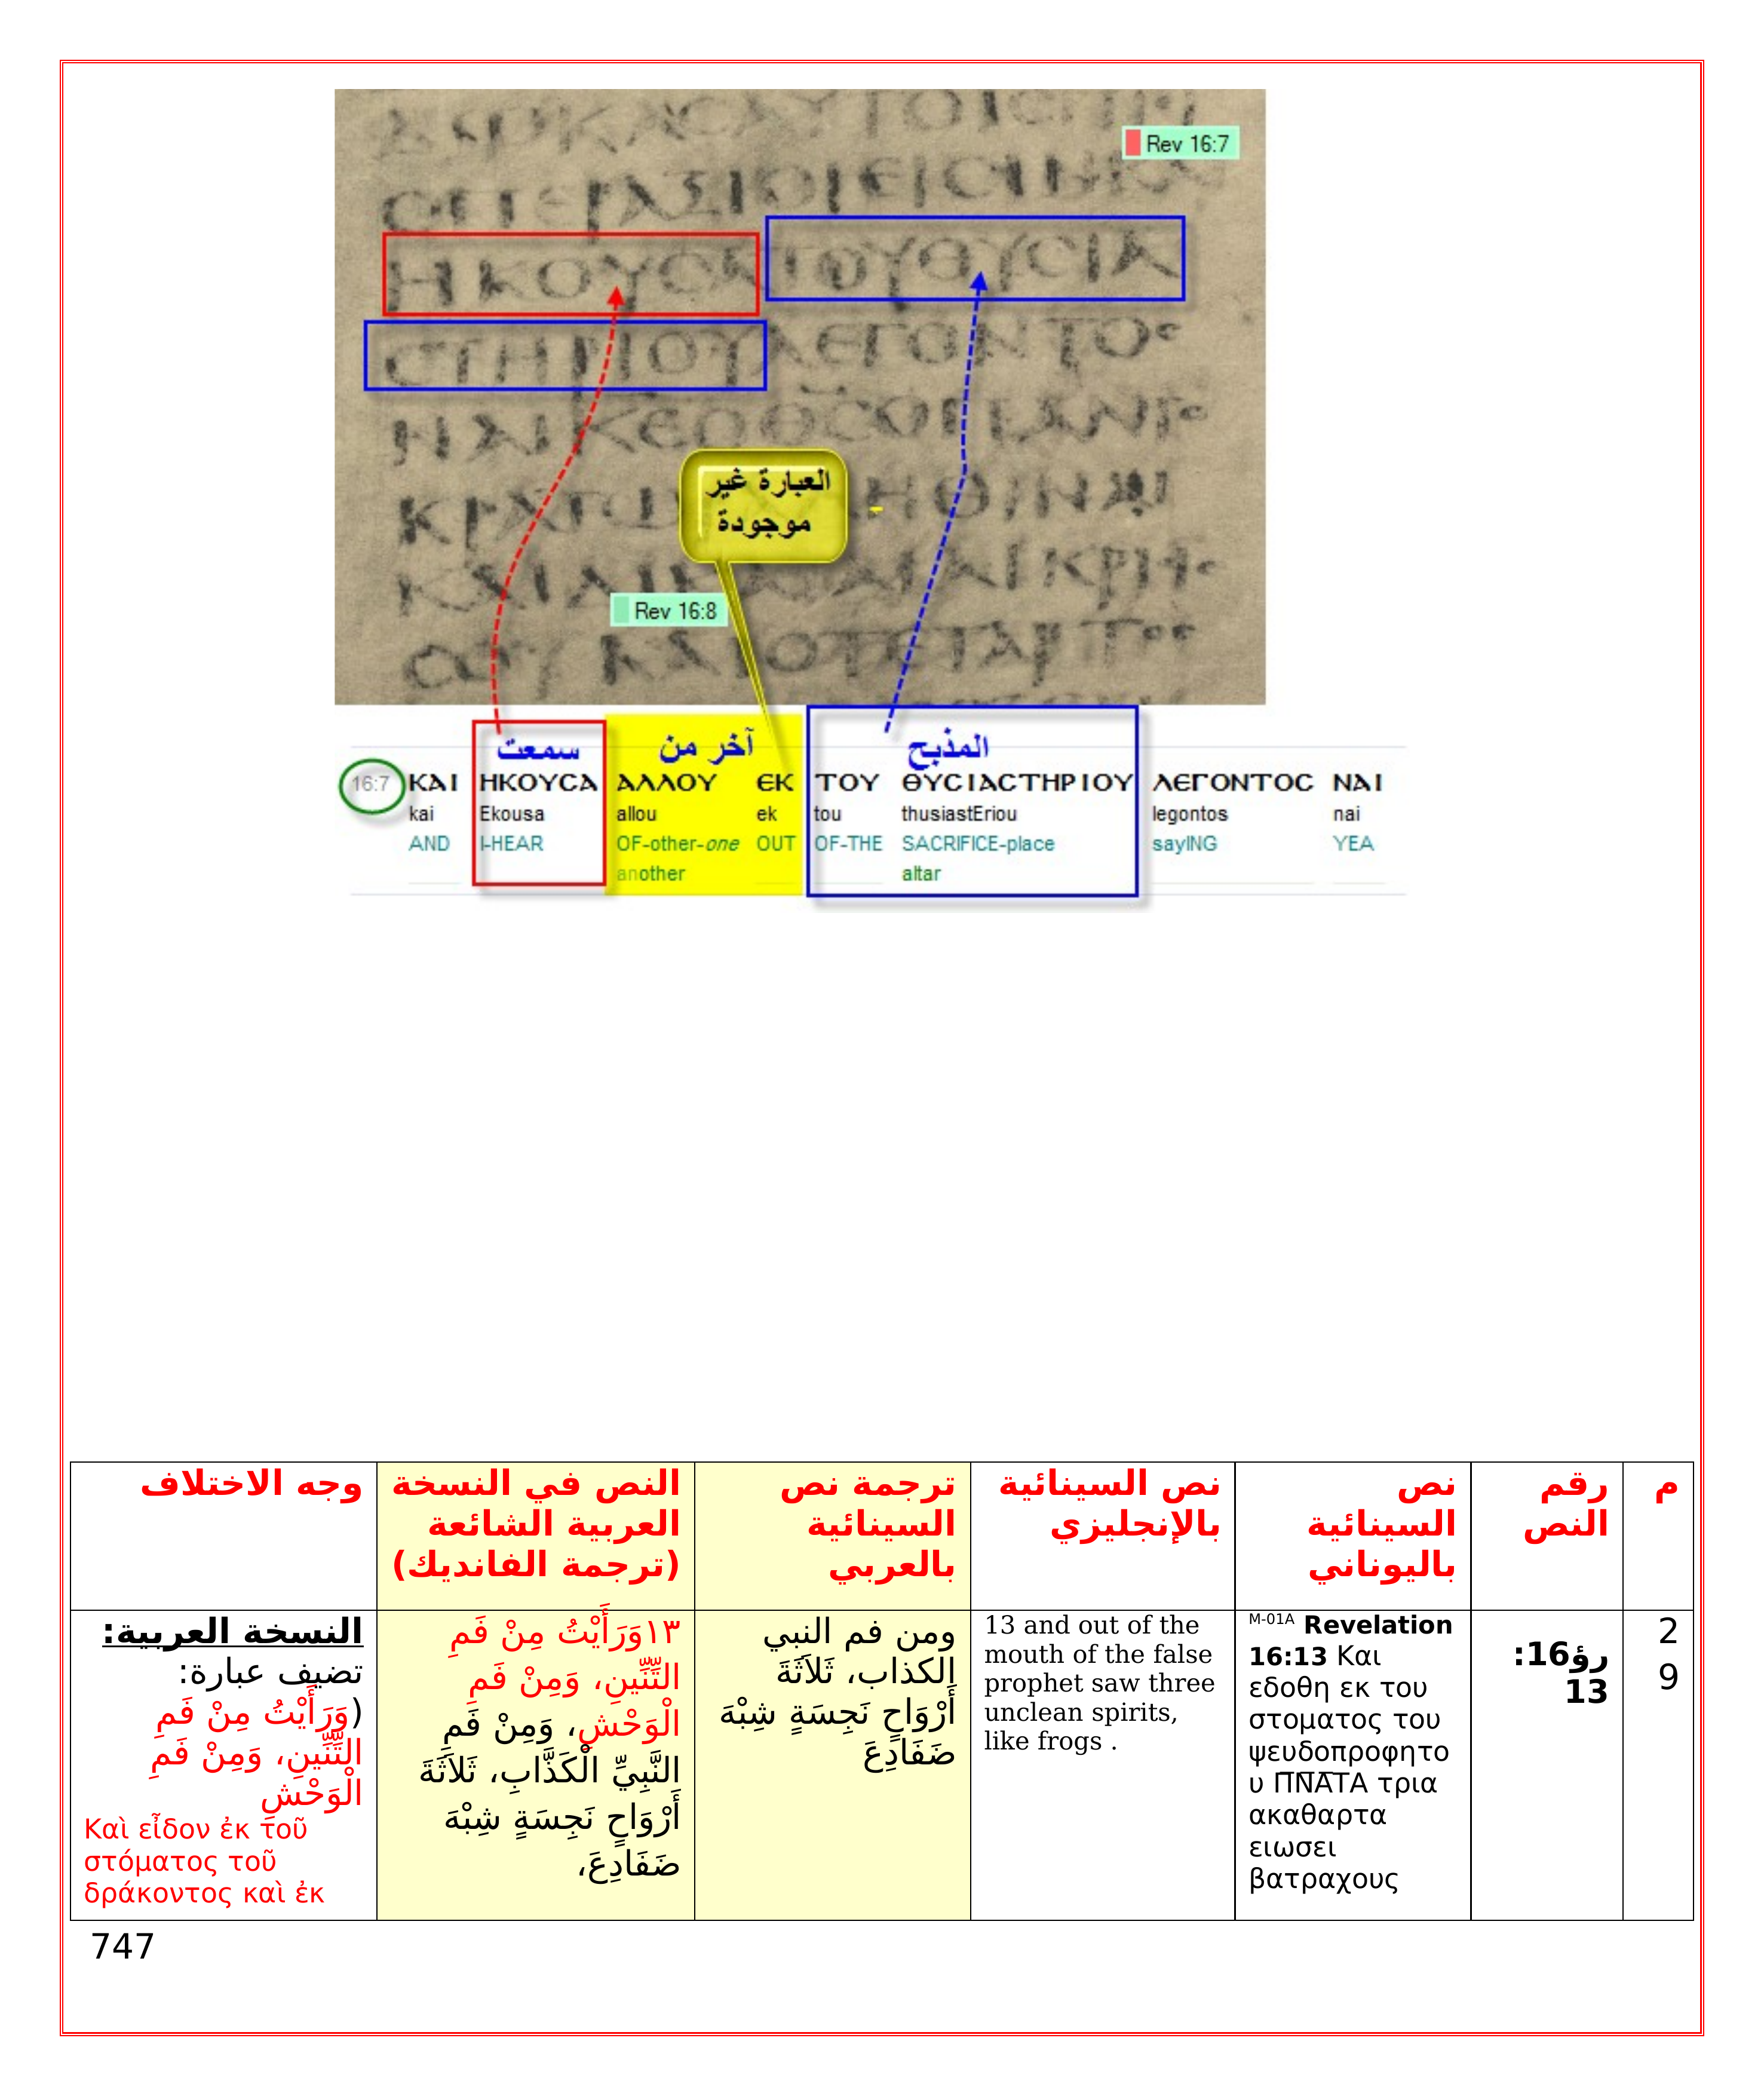 Rev 16:7
ΗΚΟΥCΑΤΟΥΘΥCΙΑ
CΤΗΡΙΟΥΛΕΓΟΝΤΟC
العبارة غير
موجودة
Rev 16:8
سمعت
آخر من
المذبح
16:7 ΚΑΙ ΗΚΟΥCΑ ΑΛΛΟΥ ΕΚ ΤΟΥ ΘΥCΙΑCΤΗΡΙΟΥ ΛΕΓΟΝΤΟC ΝΑΙ
kai Ekousa allou ek tou thusiastEriou legontos nai
AND I-HEAR OF-other-one OUT OF-THE SACRIFICE-place sayING YEA
another altar
م
رقم
النص
نص
السينائية
باليوناني
نص السينائية
بالإنجليزي
ترجمة نص
السينائية
بالعربي
النص في النسخة
العربية الشائعة
(ترجمة الفانديك)
وجه الاختلاف
2
9
رؤ16:
13
M-01A Revelation
16:13 Και
εδοθη εκ του
στοματος του
ψευδοπροφητο
υ Π̅Ν̅Α̅ΤΑ τρια
ακαθαρτα
ειωσει
βατραχους
13 and out of the
mouth of the false
prophet saw three
unclean spirits,
like frogs .
ومن فم النبي
الكذاب، ثَلاَثَةَ
أَرْوَاحٍ نَجِسَةٍ شِبْهَ
ضَفَادِعَ
١٣وَرَأَيْتُ مِنْ فَمِ
التِّنِّينِ، وَمِنْ فَمِ
الْوَحْشِ، وَمِنْ فَمِ
النَّبِيِّ الْكَذَّابِ، ثَلاَثَةَ
أَرْوَاحٍ نَجِسَةٍ شِبْهَ
ضَفَادِعَ،
النسخة العربية:
تضيف عبارة:
(وَرَأَيْتُ مِنْ فَمِ
التِّنِّينِ، وَمِنْ فَمِ
الْوَحْشِ
Καὶ εἶδον ἐκ τοῦ
στόματος τοῦ
δράκοντος καὶ ἐκ
747